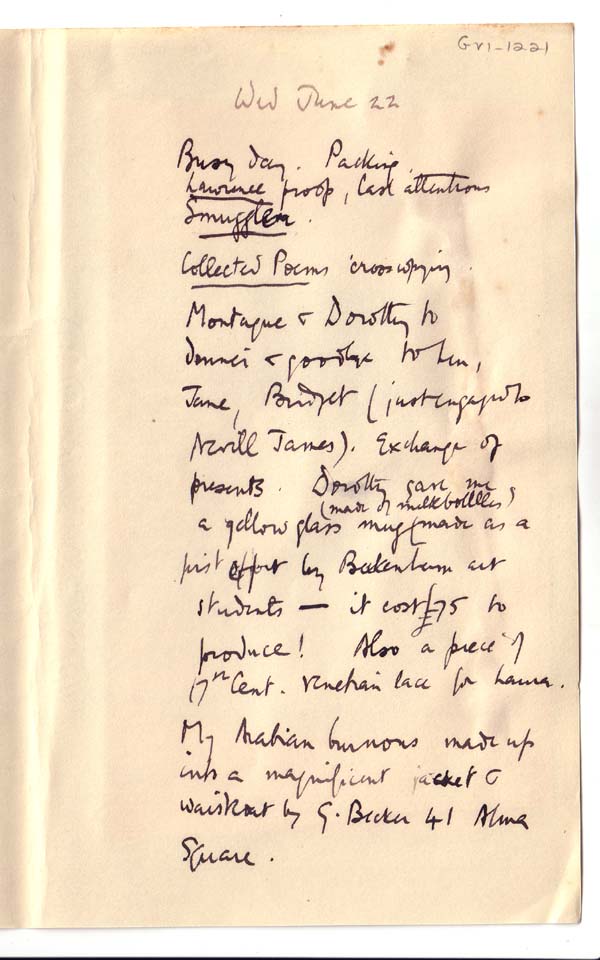 GV1-1221
Wed June 22
Busy day. Packing.
Lawrence proofs, last attentions
Smuggler.
Collected Poems crosscopying.
Montague & Dorothy to
dinner & goodbye to him,
Jane, Bridget (just engaged to
Nevill James). Exchange of
presents. Dorothy gave me
(made of milkbottles)
a yellow glass mug (made as a
first effort by Beckenham art
students — it cost £75 to
produce! Also a piece of
17th Cent. Venetian lace for Laura.
My Arabian burnous made up
into a magnificent jacket &
waistcoat by G. Becker 41 Alma
Square.